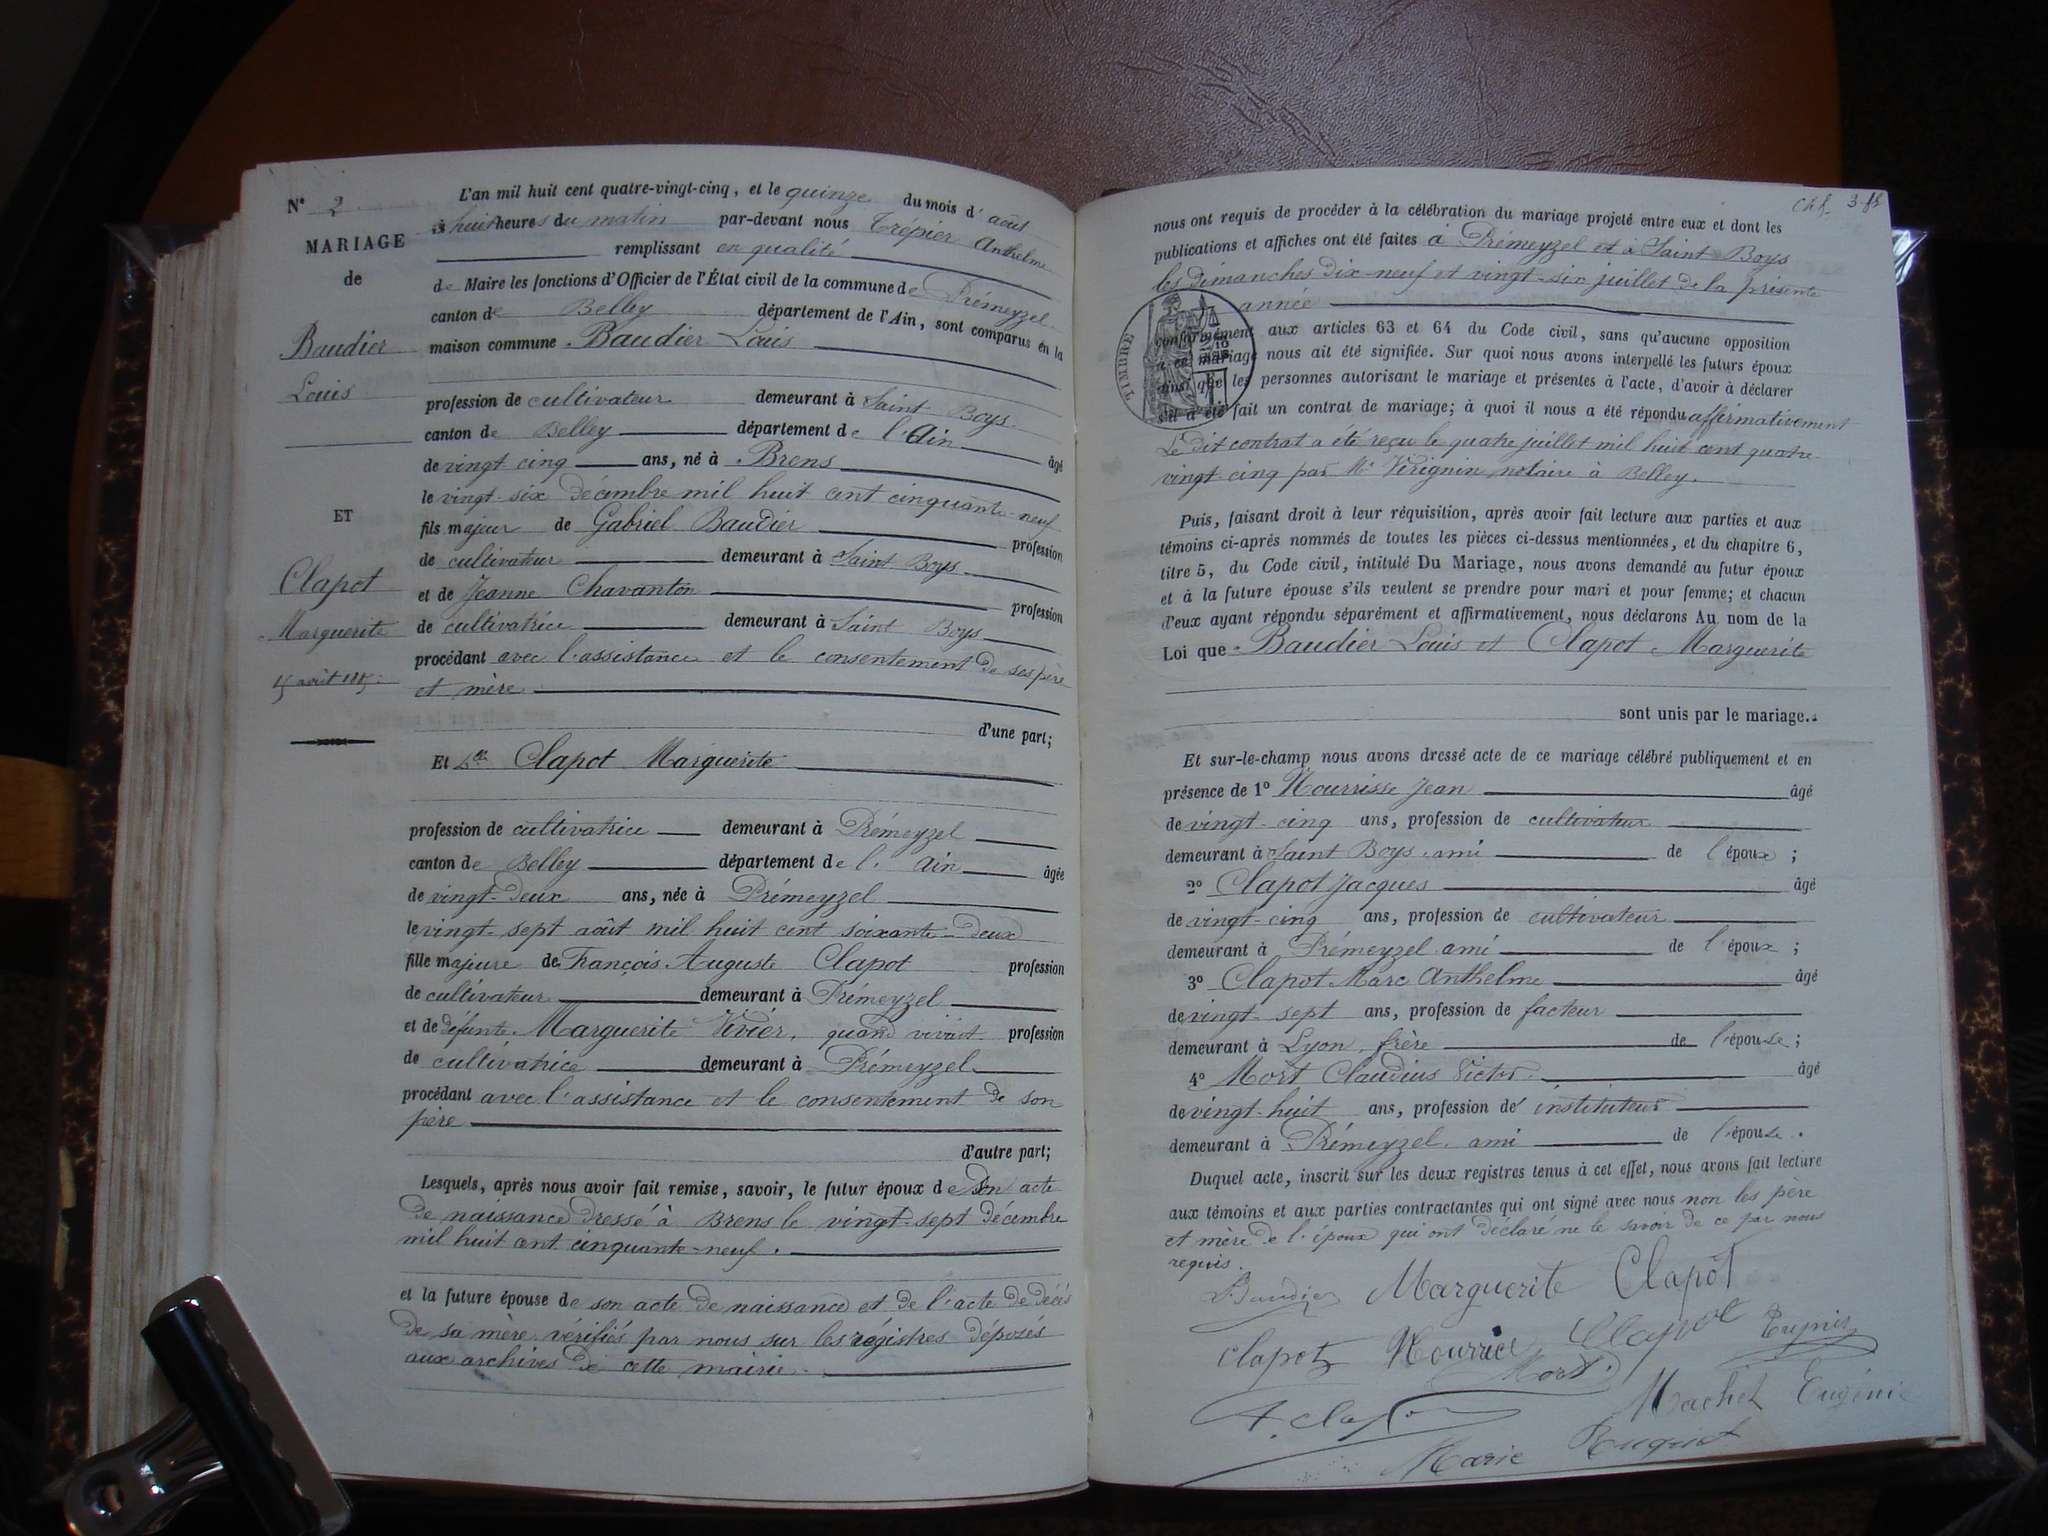 N° 2
MARIAGE
de
Baudier
Louis
ET
Clapot
Marguerite
15 août 1885.
L'an mil huit cent quatre-vingt-cinq, et le quinze du mois d'août
à huit heures du matin par-devant nous Trépier Anthelme
remplissant en qualité
de Maire les fonctions d'Officier de l'État civil de la commune de Prémeyzel
canton de Belley département de l'Ain, sont comparus en la
maison commune Baudier Louis
profession de cultivateur demeurant à Saint Boys
canton de Belley département de l'Ain âgé
de vingt cinq ans, né à Brens
le vingt-six décembre mil huit cent cinquante-neuf
fils majeur de Gabriel Baudier profession
de cultivateur demeurant à Saint Boys
et de Jeanne Chavanton profession
de cultivatrice demeurant à Saint Boys
procédant avec l'assistance et le consentement de ses père
et mère
d'une part;
Et Dlle Clapot Marguerite
profession de cultivatrice demeurant à Prémeyzel
canton de Belley département de l'Ain âgée
de vingt-deux ans, née à Prémeyzel
le vingt-sept août mil huit cent soixante-deux
fille majeure de François Auguste Clapot profession
de cultivateur demeurant à Prémeyzel
et de défunte Marguerite Vivier, quand vivait profession
de cultivatrice demeurant à Prémeyzel
procédant avec l'assistance et le consentement de son
père
d'autre part;
Lesquels, après nous avoir fait remise, savoir, le futur époux de son acte
de naissance dressé à Brens le vingt-sept décembre
mil huit cent cinquante-neuf.
et la future épouse de son acte de naissance et de l'acte de décès
de sa mère vérifiés par nous sur les régistres déposés
aux archives de cette mairie.
nous ont requis de procéder à la célébration du mariage projeté entre eux et dont les
publications et affiches ont été faites à Prémeyzel et à Saint Boys
les dimanches dix-neuf et vingt-six juillet de la présente
année
TIMBRE
conformément aux articles 63 et 64 du Code civil, sans qu'aucune opposition
à ce mariage nous ait été signifiée. Sur quoi nous avons interpellé les futurs époux
ainsi que les personnes autorisant le mariage et présentes à l'acte, d'avoir à déclarer
s'il a été fait un contrat de mariage; à quoi il nous a été répondu affirmativement
Le dit contrat a été reçu le quatre juillet mil huit cent quatre-
vingt-cinq par Me Virignin notaire à Belley.
Puis, faisant droit à leur réquisition, après avoir fait lecture aux parties et aux
témoins ci-après nommés de toutes les pièces ci-dessus mentionnées, et du chapitre 6,
titre 5, du Code civil, intitulé Du Mariage, nous avons demandé au futur époux
et à la future épouse s'ils veulent se prendre pour mari et pour femme; et chacun
d'eux ayant répondu séparément et affirmativement, nous déclarons Au nom de la
Loi que Baudier Louis et Clapot Marguerite
sont unis par le mariage.
Et sur-le-champ nous avons dressé acte de ce mariage célébré publiquement et en
présence de 1° Nourrisse Jean âgé
de vingt-cinq ans, profession de cultivateur
demeurant à Saint Boys, ami de l'époux;
2° Clapot Jacques âgé
de vingt-cinq ans, profession de cultivateur
demeurant à Prémeyzel ami de l'époux;
3° Clapot Marc Anthelme âgé
de vingt-sept ans, profession de facteur
demeurant à Lyon, frère de l'épouse;
4° Mort Claudius Victor âgé
de vingt-huit ans, profession de instituteur
demeurant à Prémeyzel, ami de l'épouse.
Duquel acte, inscrit sur les deux registres tenus à cet effet, nous avons fait lecture
aux témoins et aux parties contractantes qui ont signé avec nous non les père
et mère de l'époux qui ont déclaré ne le savoir de ce par nous
requis.
Baudier Marguerite Clapot
Clapot Nourrice Clapot
Mort
A. Clapot Machet Eugénie
Marie Ruquet